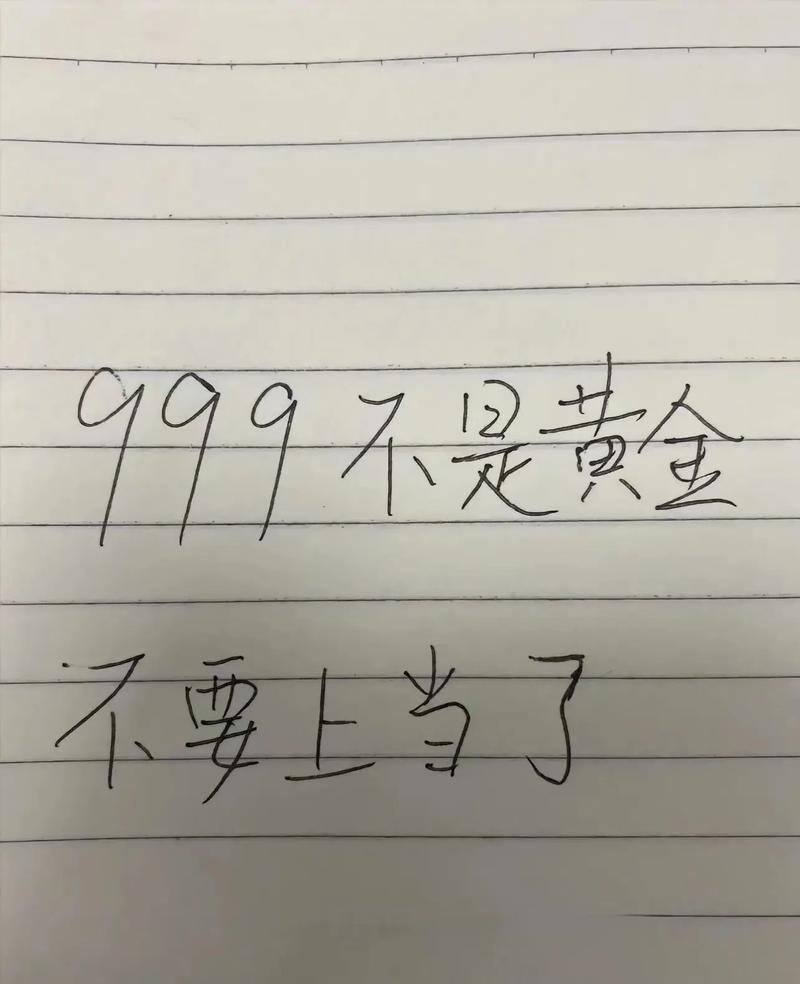 999不是黄金
不要上当了